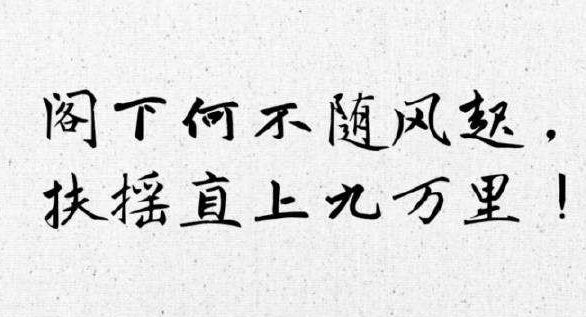 阁下何不随风起，
扶摇直上九万里！